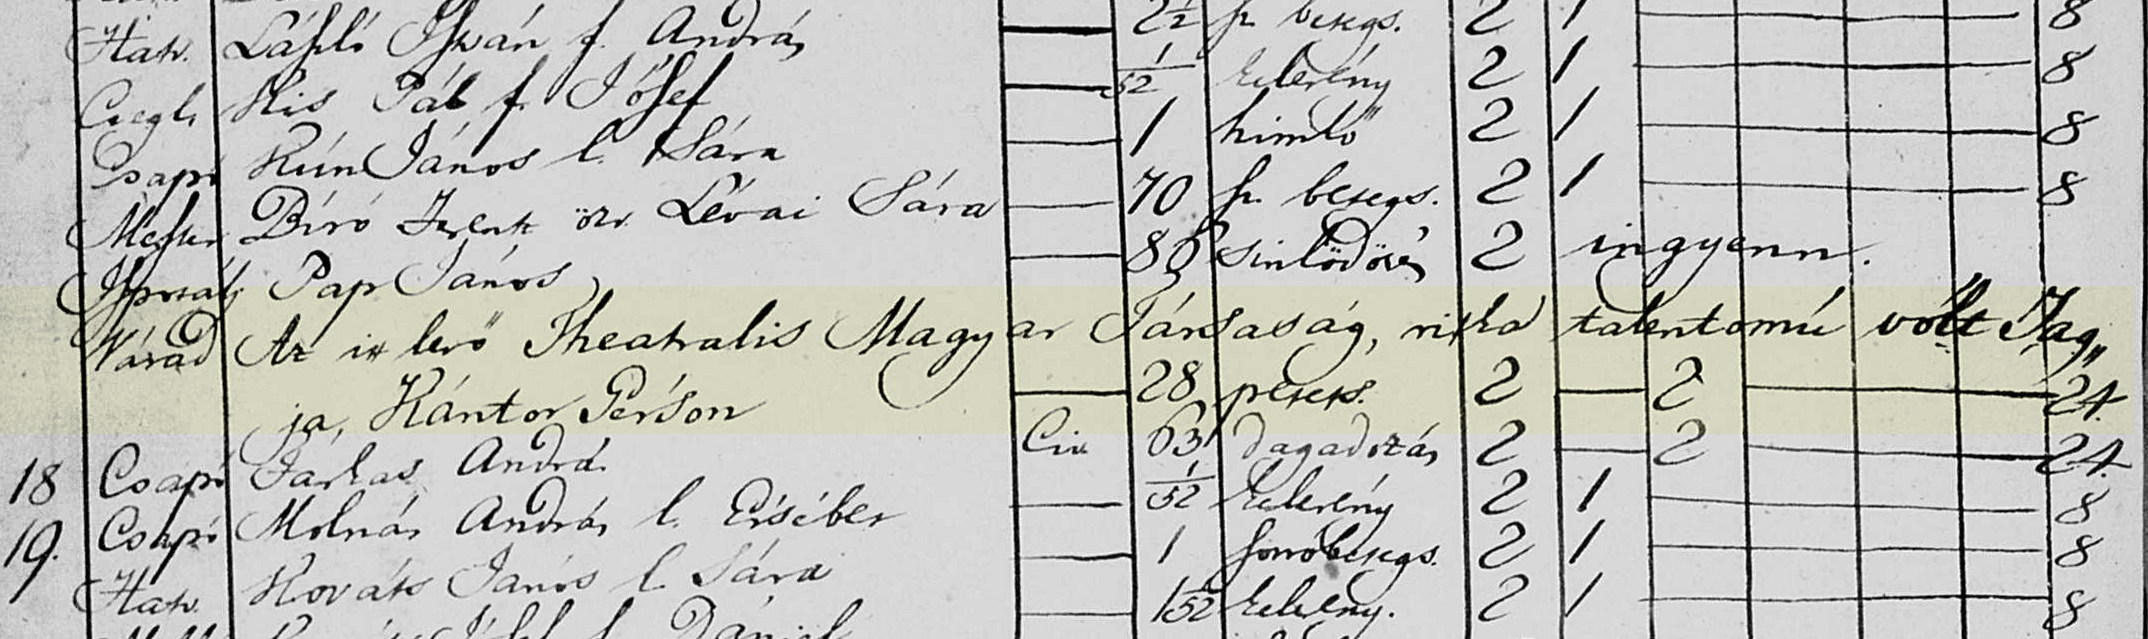 Hatv. László István f. András — 2½ sz. betegs. 2 1 — 8
Czegl. Kis Pál f. Jósef — 1/52 kelevény 2 1 — 8
Csapó Kún János l. Sára — 1 himlő 2 1 — 8
Mester Bíró Ferentz özv. Lévai Sára — 70 sz. betegs. 2 1 — 8
Ispotály Pap János — 86 sinlődözés 2 ingyenn.
Várad Az itt levő Theatralis Magyar Társaság, ritka talentomú vólt Tag„
ja, Kántor Pérson — 28 petets. 2 — 2 — 24.
18 Csapó Farkas András Civ. 63 dagadozás 2 — 2 — 24.
19. Csapó Molnár András l. Ersébet — 1/52 kelevény 2 1 — 8
Hatv. Kováts János l. Sára — 1 betegs. 2 1 — 8
f. Dániel — 1/52 kelevény. 2 1 — 8